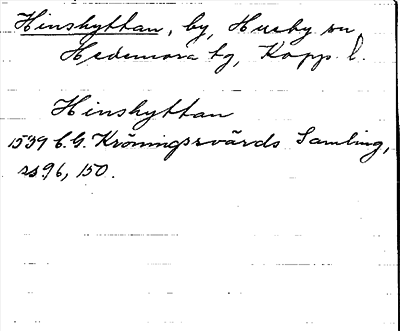 Hinshyttan, by, Husby sn,
Hedemora tg, Kopp. l.
Hinshyttan
1539 C.G. Kröningsvärds Samling,
ss 96, 150.